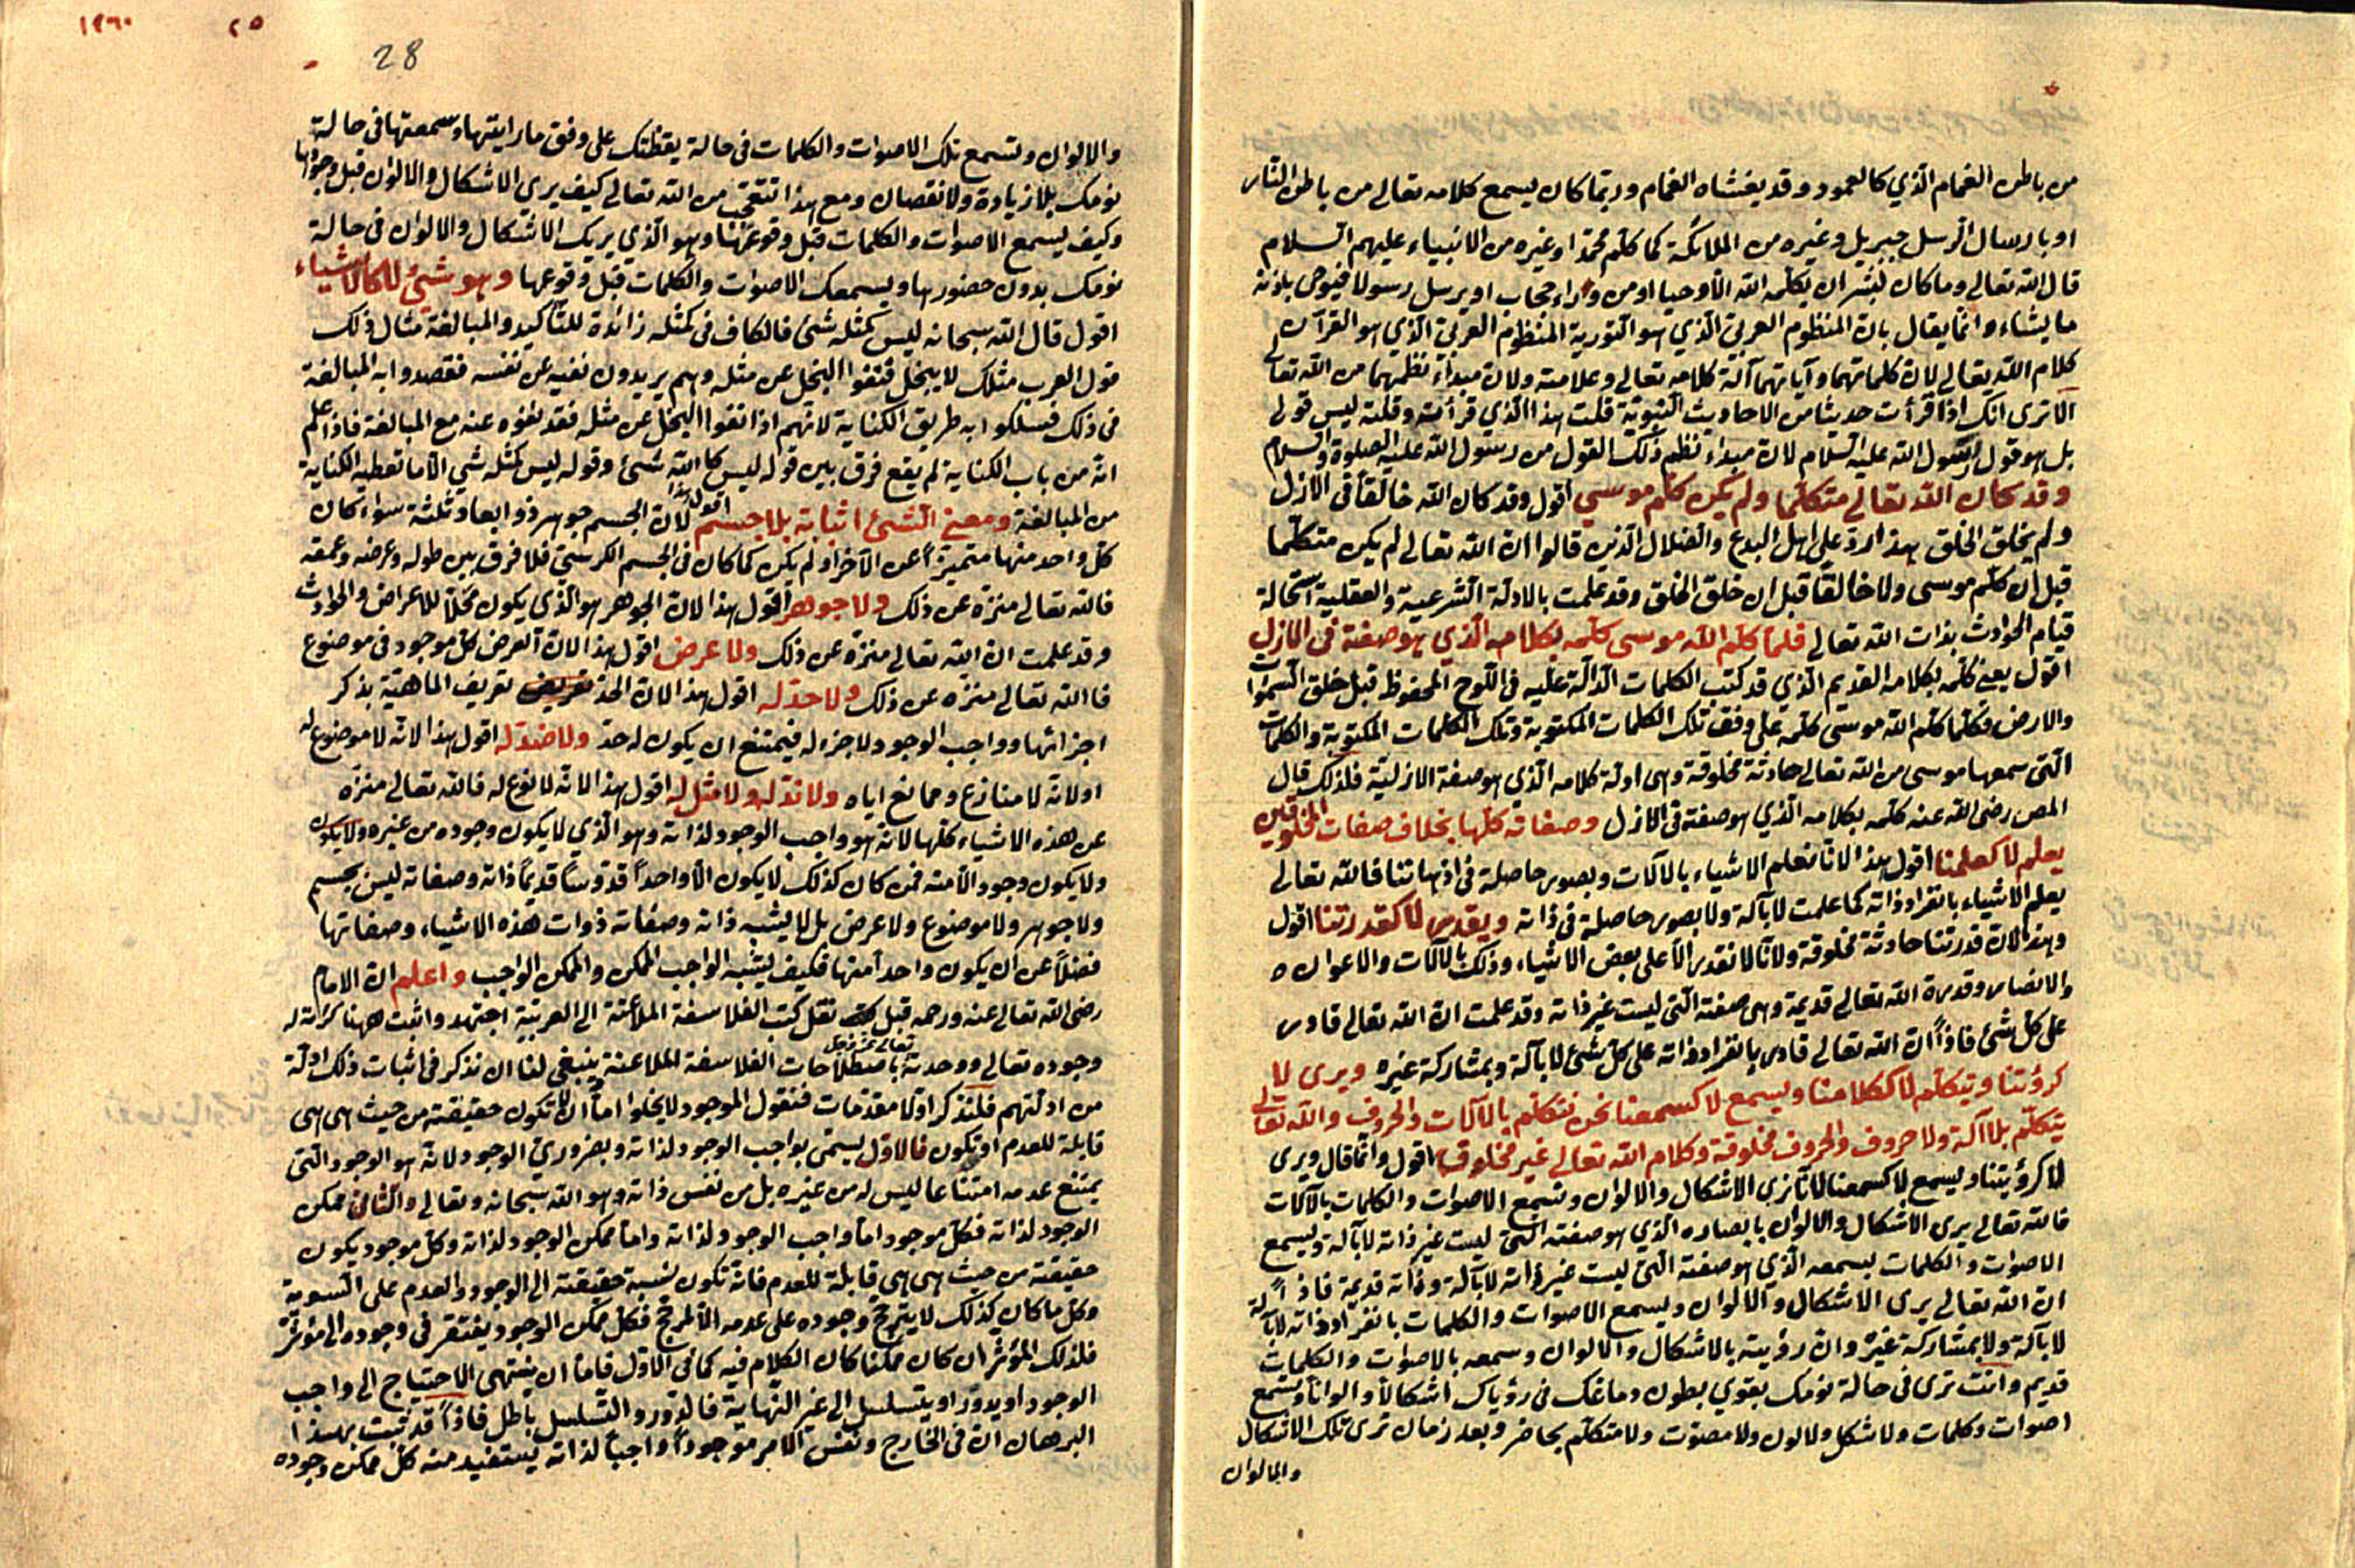 من باطن الغمام الذي كالعمود وقد يغشاه الغمام وربما كان يسمع كلامه تعالى من باطن النار
او بارسال الرسل جبريل وغيره من الملائكة كما كلم محمدا وغيره من الانبياء عليهم السلام
قال الله تعالى وما كان لبشر ان يكلمه الله الا وحيا او من وراء حجاب او يرسل رسولا فيوحي باذنه
ما يشاء وانما يقال بان المنظوم العربي الذي هو التورية المنظوم العربي الذي هو القرآن
كلام الله تعالى لان كلماتهما وآياتهما آلة كلامه تعالى وعلامته ولان مبدأ نظمهما من الله تعالى
الا ترى انك اذا قرأت حديثا من الاحاديث النبوية قلت هذا الذي قرأته وقلته ليس قولي
بل هو قول رسول الله عليه السلام لان مبدأ نظم ذلك القول من رسول الله عليه الصلوة والسلام
وقد كان الله تعالى متكلما ولم يكن كلم موسى اقول وقد كان الله خالقا في الازل
ولم يخلق الخلق هذا رد على اهل البدع والضلال الذين قالوا ان الله تعالى لم يكن متكلما
قبل ان كلم موسى ولا خالقا قبل ان خلق الخلق وقد علمت بالادلة الشرعية والعقلية استحالة
قيام الحوادث بذات الله تعالى فلما كلم الله موسى كلمه بكلامه الذي هو صفته في الازل
اقول يعني كلمه بكلامه القديم الذي قد كتب الكلمات الدالة عليه في اللوح المحفوظ قبل خلق السموات
والارض فكلما كلم الله موسى كلمه على وفق تلك الكلمات المكتوبة وتلك الكلمات المكتوبة والكلمات
التي سمعها موسى من الله تعالى حادثة مخلوقة وهي ادلة كلامه الذي هو صفته الازلية فلذلك قال
المص رضي الله عنه كلمه بكلامه الذي هو صفته في الازل وصفاته كلها بخلاف صفات المخلوقين
يعلم لا كعلمنا اقول هذا لانا نعلم الاشياء بالآلات وبصور حاصلة في اذهاننا فالله تعالى
يعلم الاشياء بانفراد ذاته كما علمت لا بآلة ولا بصور حاصلة في ذاته ويقدر لا كقدرتنا اقول
وهذا لان قدرتنا حادثة مخلوقة ولانا لا نقدر الا على بعض الاشياء وذلك بالآلات والاعوان
والانصار وقدرة الله تعالى قديمة وهي صفته التي ليست غير ذاته وقد علمت ان الله تعالى قادر
على كل شئ فاذا ان الله تعالى قادر بانفراد ذاته على كل شئ لا بآلة وبمشاركة غيره ويرى لا
كرؤيتنا ويتكلم لا ككلامنا ويسمع لا كسمعنا نحن نتكلم بالآلات والحروف والله تعالى
يتكلم بلا آلة ولا حروف والحروف مخلوقة وكلام الله تعالى غير مخلوق اقول وانما قال ويرى
لا كرؤيتنا ويسمع لا كسمعنا لانا نرى الاشكال والالوان ونسمع الاصوات والكلمات بالآلات
فالله تعالى يرى الاشكال والالوان بابصاره الذي هو صفته التي ليست غير ذاته لا بآلة ويسمع
الاصوات والكلمات بسمعه الذي هو صفته التي ليست غير ذاته لا بآلة وذاته قديمة فاذا
ان الله تعالى يرى الاشكال والالوان ويسمع الاصوات والكلمات بانفراد ذاته لا بآلة
لا بآلة ولا بمشاركة غيره وان رؤيته بالاشكال والالوان وسمعه بالاصوات والكلمات
قديم وانت ترى في حالة نومك بقوي بطون دماغك في رؤياك اشكالا والوانا وتسمع
اصوات وكلمات ولا شكل ولا لون ولا مصوت ولا متكلم بحاضر وبعد زمان ترى تلك الاشكال
والالوان
١٩٦٠
٢٥
28
والالوان وتسمع تلك الاصوات والكلمات في حالة يقظتك على وفق ما رايتها وسمعتها في حالة
نومك بلا زيادة ولا نقصان ومع هذا تتعجب من الله تعالى كيف يرى الاشكال والالوان قبل وجودها
وكيف يسمع الاصوات والكلمات قبل وقوعها وهو الذي يريك الاشكال والالوان في حالة
نومك بدون حضورها ويسمعك الاصوات والكلمات قبل وقوعها وهو شئ لا كالاشياء
اقول قال الله سبحانه ليس كمثله شئ فالكاف في كمثله زائدة للتأكيد والمبالغة مثال ذلك
قول العرب مثلك لا يبخل فنفوا البخل عن مثله وهم يريدون نفيه عن نفسه فقصدوا به المبالغة
في ذلك فسلكوا به طريق الكناية لانهم اذا نفوا البخل عن مثله فقد نفوه عنه مع المبالغة فاذا علم
انه من باب الكناية لم يقع فرق بين قوله ليس كالله شئ وقوله ليس كمثله شئ الا ما تعطيه الكناية
من المبالغة ومعنى الشئ اثباته بلا جسم اقول هذا لان الجسم جوهر ذو ابعاد ثلثة سواء كان
كل واحد منها متميزا عن الآخر او لم يكن كما كان في الجسم الكرسي فلا فرق بين طوله وعرضه وعمقه
فالله تعالى منزه عن ذلك ولا جوهر اقول هذا لان الجوهر هو الذي يكون محلا للاعراض والحوادث
وقد علمت ان الله تعالى منزه عن ذلك ولا عرض اقول هذا لان العرض كل موجود في موضوع
فالله تعالى منزه عن ذلك ولا حد له اقول هذا لان الحد تعريف الماهية بذكر
اجزائها وواجب الوجود لا جزء له فيمتنع ان يكون له حد ولا ضد له اقول هذا لانه لا موضوع له
او لانه لا منازع وممانع اياه ولا ند له ولا مثل له اقول هذا لانه لا نوع له فالله تعالى منزه
عن هذه الاشياء كلها لانه هو واجب الوجود لذاته وهو الذي لا يكون وجوده من غيره ولا يكون
ولا يكون وجود الا منه فمن كان كذلك لا يكون الا واحدا قدوسا قديما ذاته وصفاته ليس بجسم
ولا جوهر ولا موضوع ولا عرض بل لا يشبه ذاته وصفاته ذوات هذه الاشياء وصفاتها
فضلا عن ان يكون واحدا منها فكيف يشبه الواجب الممكن والممكن الواجب واعلم ان الامام
رضي الله تعالى عنه ورحمه قبل نقل كتب الفلاسفة الملاعنة الى العربية اجتهد واثبت ههنا
وجوده تعالى ووحدته باصطلاحات الفلاسفة الملاعنة ينبغي لنا ان نذكر في اثبات ذلك ادلة
تعالى عز وجل
من ادلتهم فلنذكر اولا مقدمات فنقول الموجود لا يخلوا اما ان لا تكون حقيقته من حيث هي هي
قابلة للعدم او تكون فالاول يسمى بواجب الوجود لذاته وبضروري الوجود لانه هو الوجود التي
يمتنع عدمه امتناعا ليس له من غيره بل من نفس ذاته وهو الله سبحانه وتعالى والثاني ممكن
الوجود لذاته فكل موجود اما واجب الوجود لذاته واما ممكن الوجود لذاته وكل موجود يكون
حقيقته من حيث هي هي قابلة للعدم فانه تكون نسبة حقيقته الى الوجود والعدم على السوية
وكل ما كان كذلك لا يترجح وجوده على عدمه الا لمرجح فكل ممكن الوجود يفتقر في وجوده الى مؤثر
فلذلك المؤثر ان كان ممكنا كان الكلام فيه كما في الاول فاما ان ينتهي الاحتياج الى واجب
الوجود او يدور او يتسلسل الى غير النهاية فالدور والتسلسل باطل فاذا قد ثبت بهذا
البرهان ان في الخارج ونفس الامر موجودا واجبا لذاته يستفيد منه كل ممكن وجوده